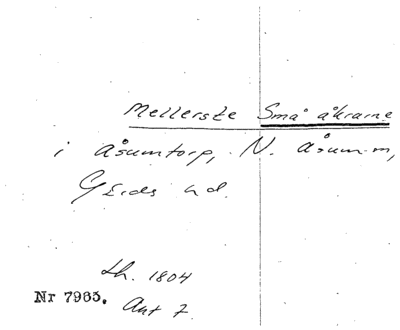 Mellerste Små åkrarne
i Åsumtorp, N. Åsum-m,
Gärds hd.
Lh. 1804
Nr 7965. Akt 7